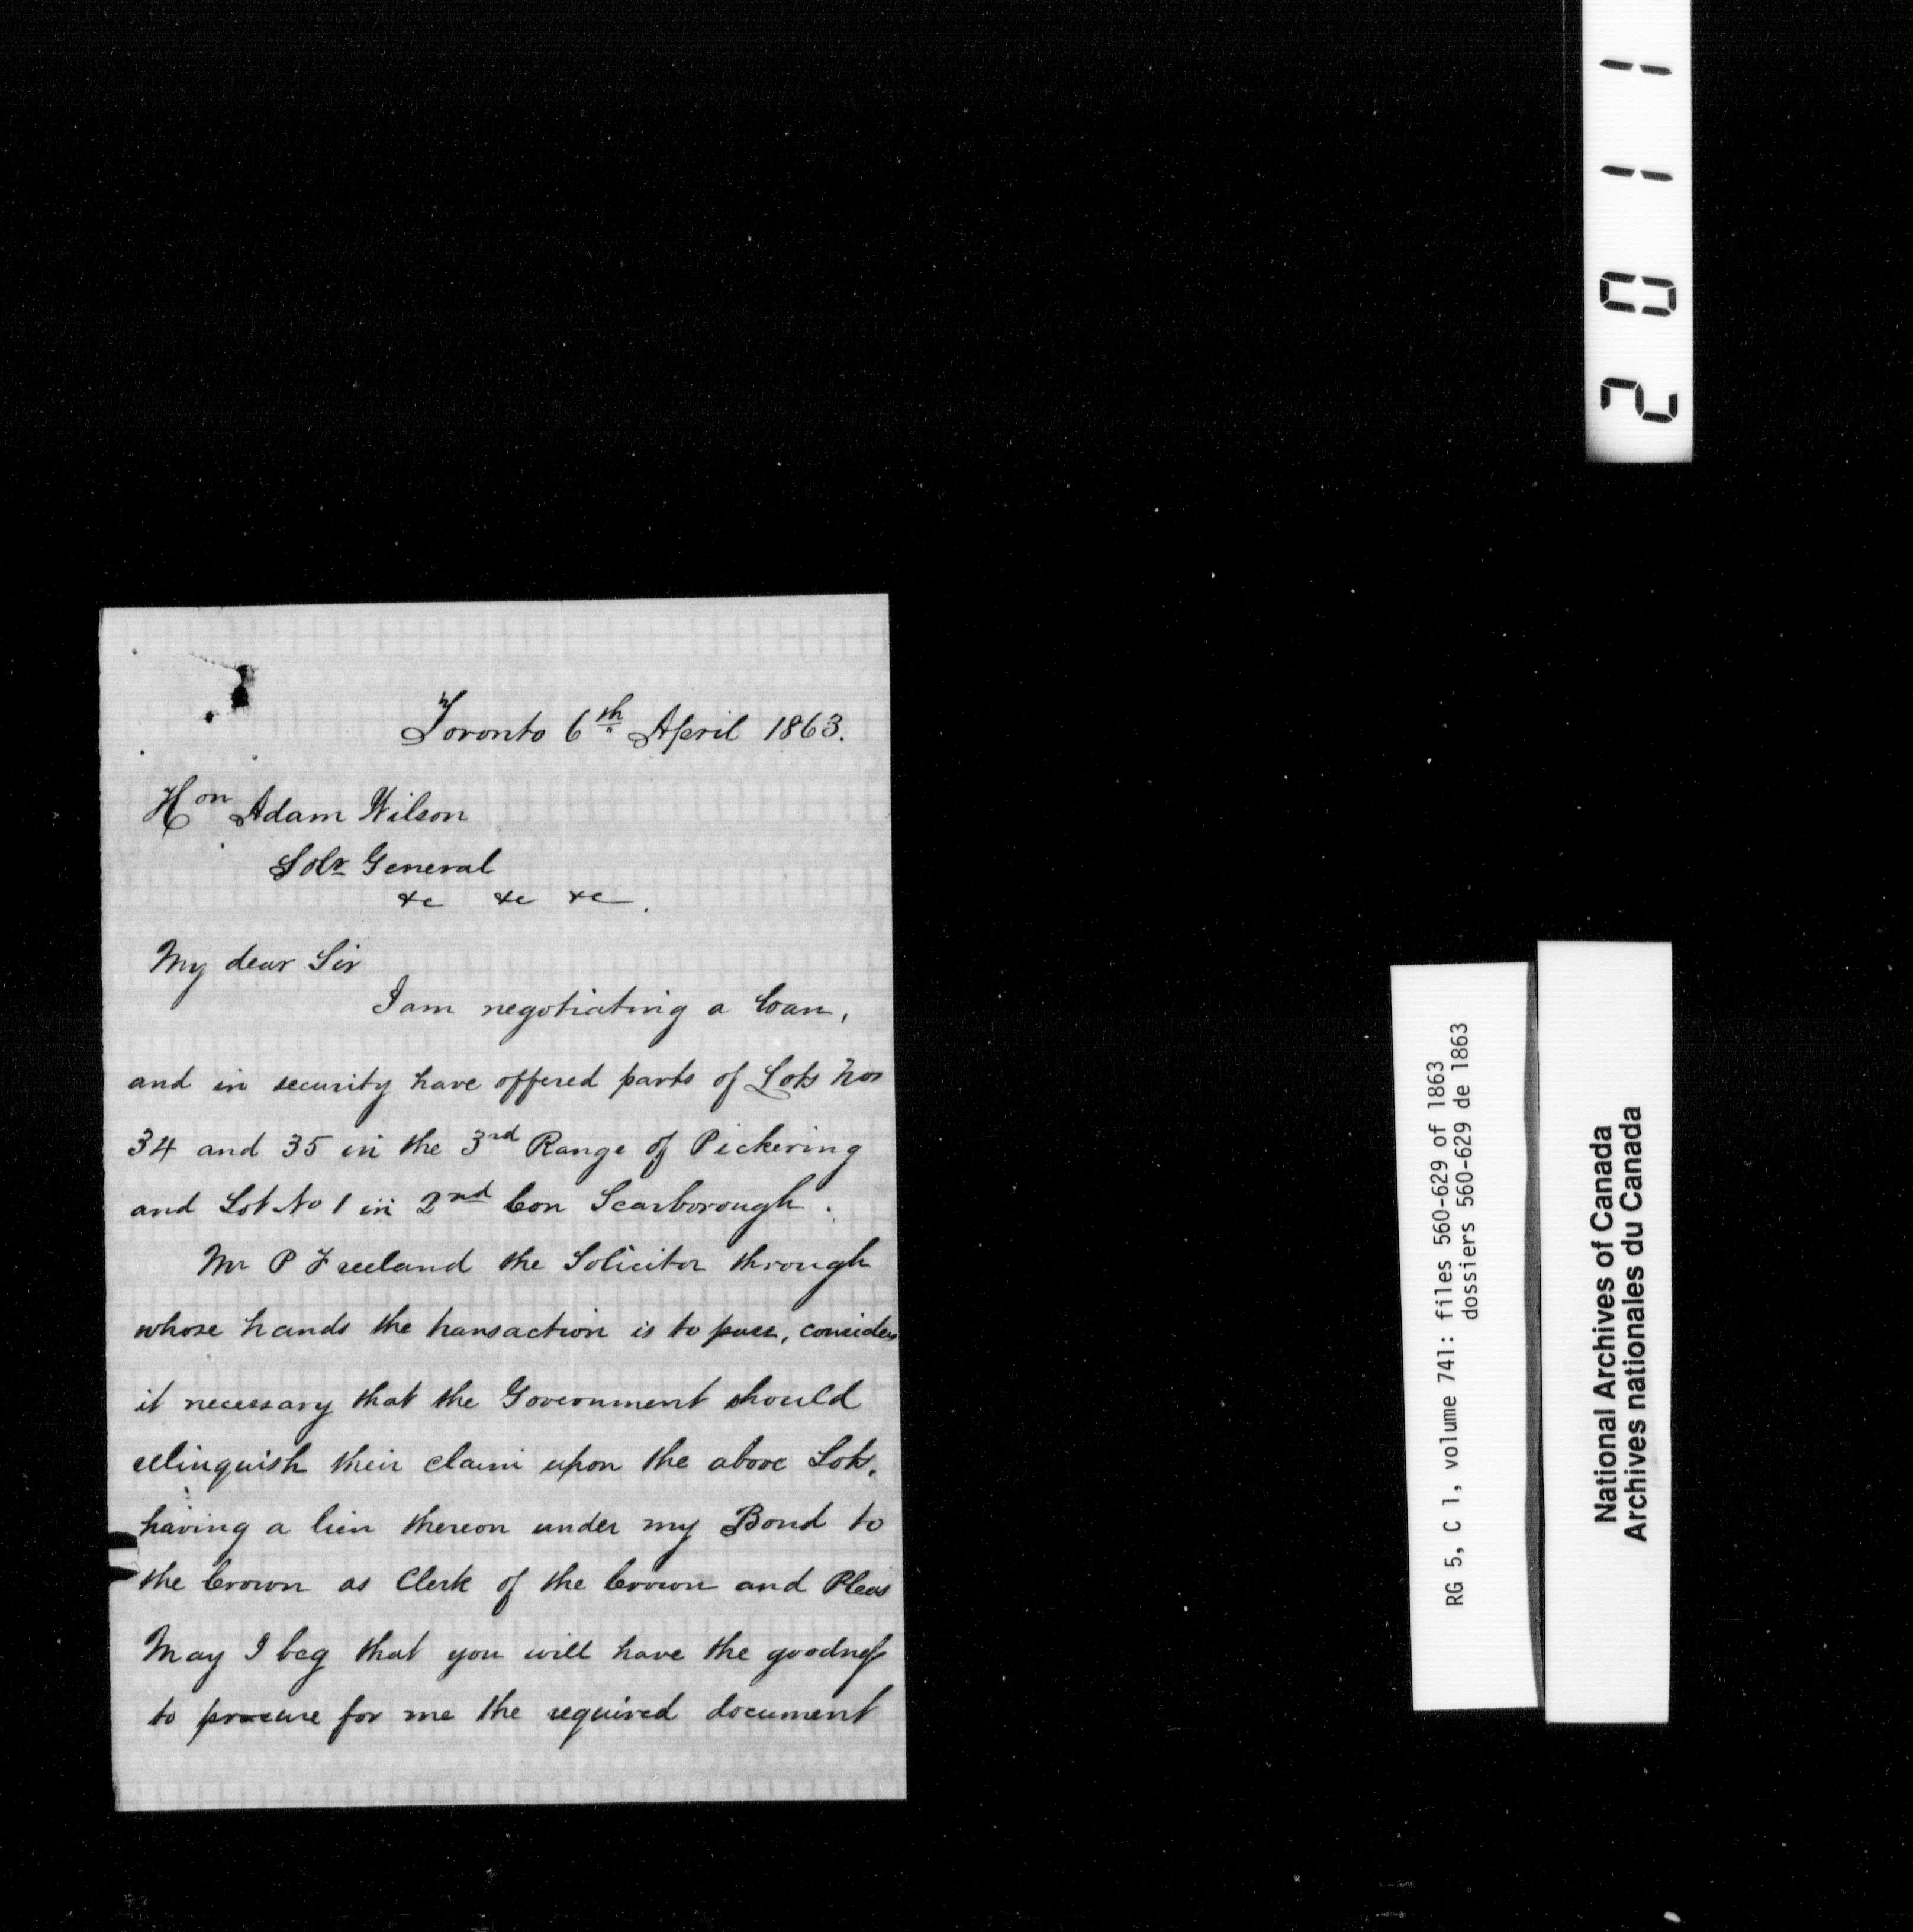 Toronto 6th April 1863.
Hon Adam Wilson
Solr General
&c &c &c.
My dear Sir
I am negotiating a loan,
and in security have offered parts of Lots Nos
34 and 35 in the 3rd Range of Pickering
and Lot No 1 in 2nd Con Scarborough.
Mr P Freeland the Solicitor through
whose hands the transaction is to pass, considers
it necessary that the Government should
relinquish their claim upon the above Lots,
having a lien thereon under my Bond to
the Crown as Clerk of the Crown and Pleas
May I beg that you will have the goodness
to procure for me the required document
2011
RG 5, C 1, volume 741: files 560-629 of 1863
dossiers 560-629 de 1863
National Archives of Canada
Archives nationales du Canada